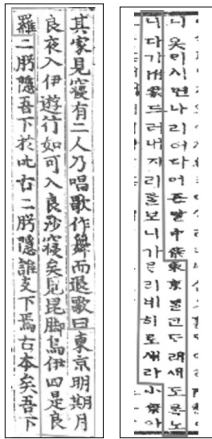 其家見寢有二人乃唱歌作舞而退歌曰東京明期月
良夜入伊遊行如可入良沙寢矣見昆脚烏伊四是良
羅二肹隱吾下於叱古二肹隱誰支下焉古本矣吾下
니옷ᄆᆡ시면나리어다머즌말中葉東京ᄇᆞᆯᄀᆞᆫᄃᆞ래새도록노
니다가附葉드러내자리ᄅᆞᆯ보니가ᄅᆞ리네히로섀라小葉아